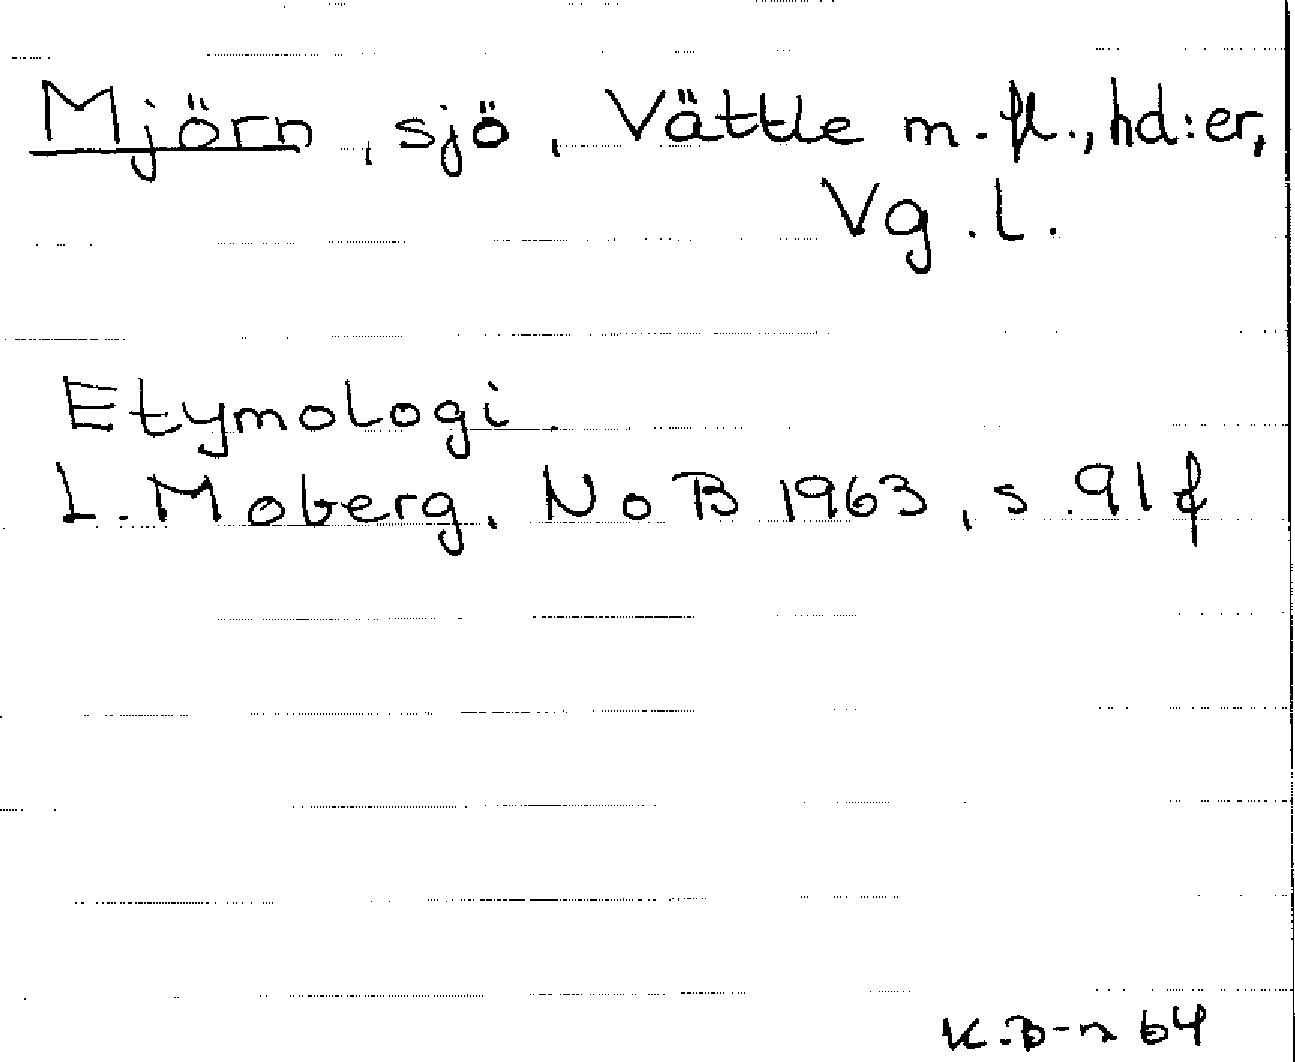 Mjörn, sjö, Vättle m.fl., hd:er,
Vg.l.
Etymologi.
L. Moberg. NoB 1963, s. 91 f
K.B-n 64